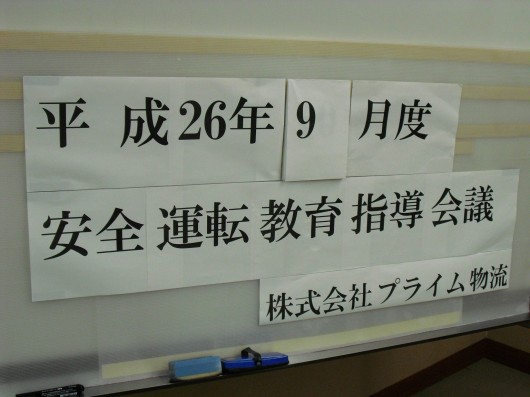 平成26年9月度
安全運転教育指導会議
株式会社プライム物流